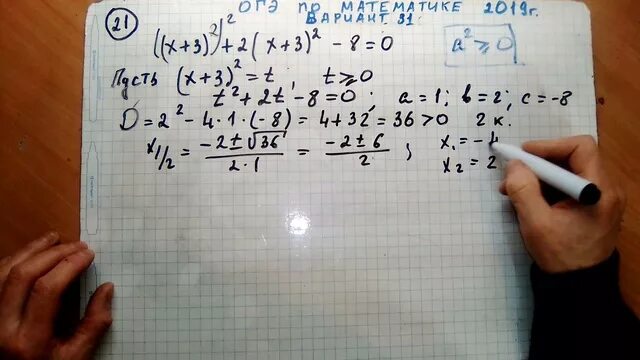 ОГЭ по МАТЕМАТИКЕ 2019г.
ВАРИАНТ 31
21
((x+3)²)² + 2(x+3)² - 8 = 0
a² ⩾ 0
Пусть (x+3)² = t, t ⩾ 0
t² + 2t - 8 = 0; a = 1; b = 2; c = -8
D = 2² - 4·1·(-8) = 4 + 32 = 36 > 0 2 к.
x₁/₂ = (-2 ± √36)/(2·1) = (-2 ± 6)/2 ; x₁ = -4
x₂ = 2